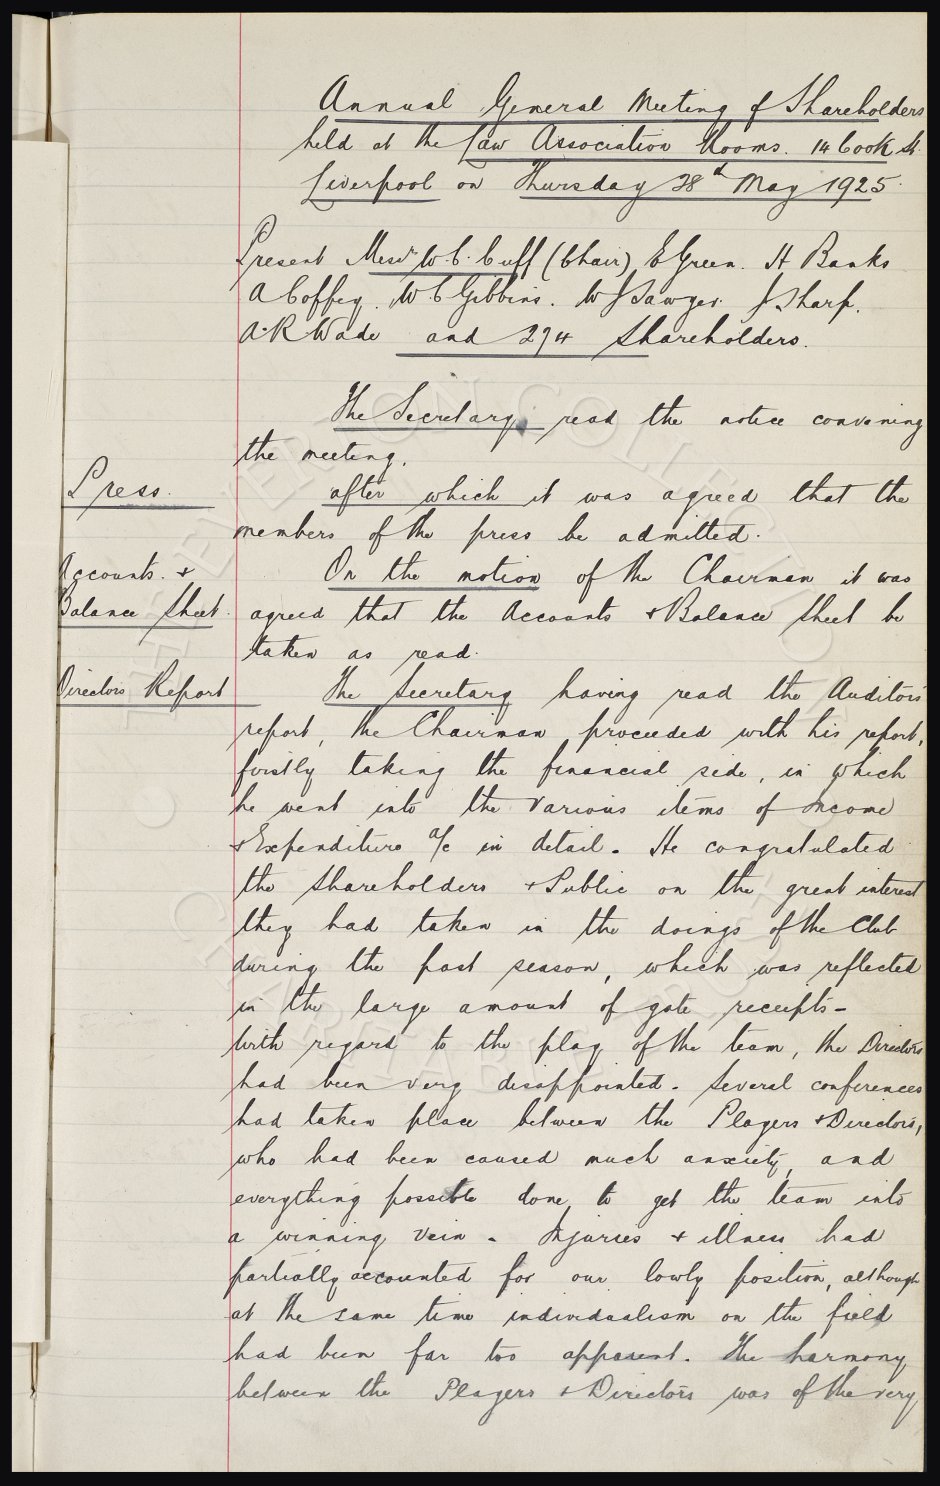 Annual General Meeting of Shareholders
held at the Law Association Rooms. 14 Cook St.
Liverpool on Thursday 28th May 1925.
Present Messrs W.C. Cuff (Chair) E Green. H Banks
A Coffey. W C Gibbins. W J Sawyer. J Sharp.
A.R Wade and 274 Shareholders.
The Secretary read the notice convening
the meeting.
Press.
after which it was agreed that the
members of the press be admitted.
Accounts. &
Balance Sheet.
On the motion of the Chairman it was
agreed that the Accounts & Balance Sheet be
taken as read.
Directors Report
The Secretary having read the Auditors
report, the Chairman proceeded with his report,
firstly taking the financial side, in which
he went into the various items of Income
& Expenditure a/c in detail. He congratulated
the Shareholders & Public on the great interest
they had taken in the doings of the Club
during the past season, which was reflected
in the large amount of gate receipts-
With regard to the play of the team, the Directors
had been very disappointed. Several conferences
had taken place between the Players & Directors,
who had been caused much anxiety, and
everything possible done to get the team into
a winning vein. Injuries & illness had
partially accounted for our lowly position, although
at the same time individualism on the field
had been far too apparent. The harmony
between the Players & Directors was of the very